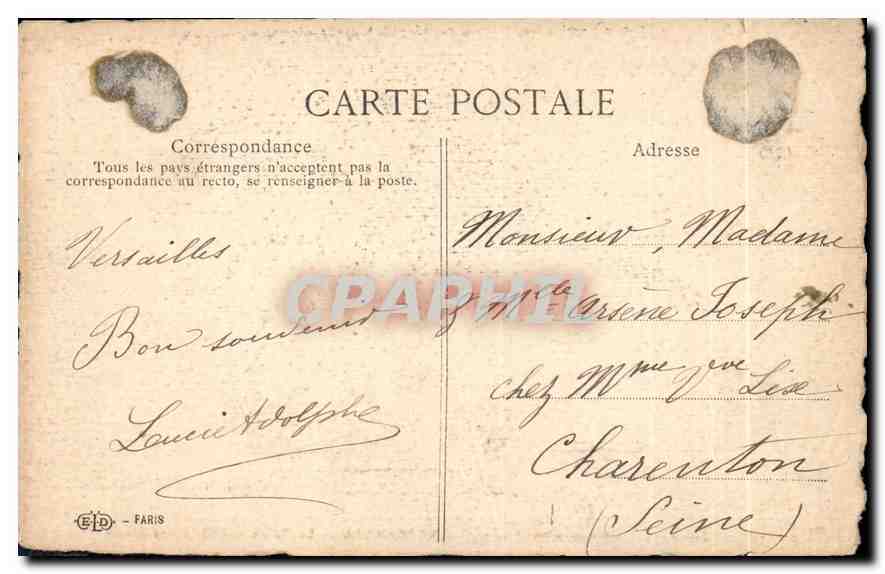 CARTE POSTALE
Correspondance
Tous les pays étrangers n'acceptent pas la
correspondance au recto, se renseigner à la poste.
Versailles
Bon souvenir
Lucie Adolphe
ELD - PARIS
Adresse
Monsieur, Madame
& Mde Arsène Joseph
chez Mme Vve Lise
Charenton
(Seine)
CPAPHIL